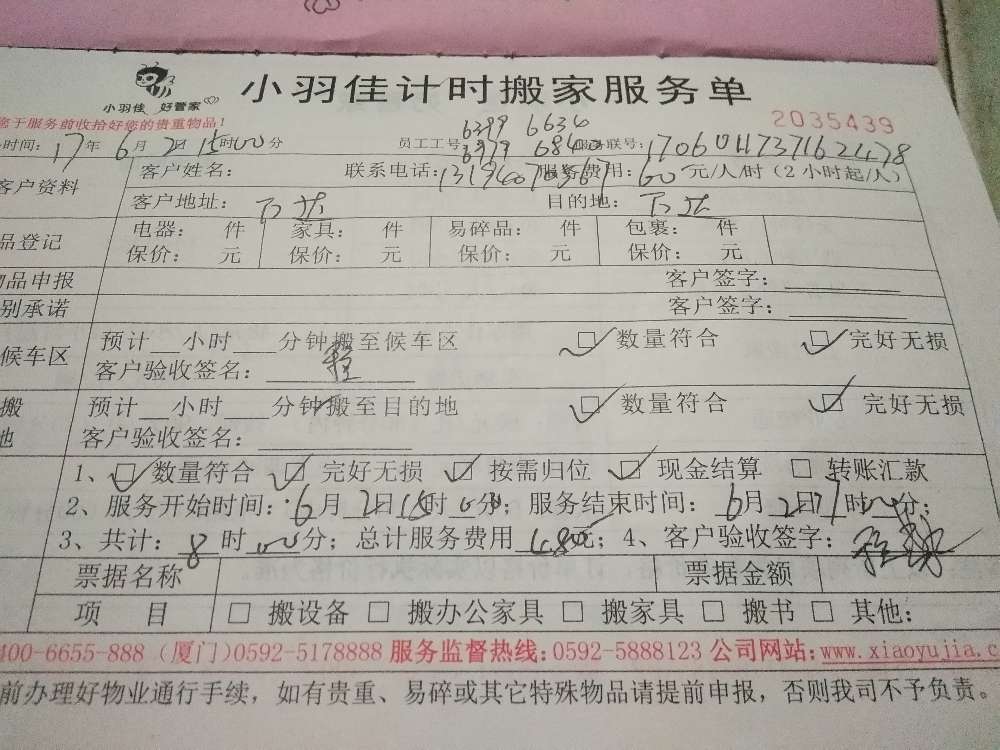 小羽佳计时搬家服务单
小羽佳 好管家
您于服务前收拾好您的贵重物品!
2035439
时间: 17年 6月 2日 15时00分 员工工号 6399 6634 6979 6840 服务联号: 1706011737162478
客户资料 客户姓名: 联系电话: 服务费用: 60 元/人/时(2小时起/人)
客户地址: 万达 目的地: 万达
品登记 电器: 件 家具: 件 易碎品: 件 包裹: 件
保价: 元 保价: 元 保价: 元 保价: 元
物品申报 客户签字:
别承诺 客户签字:
候车区 预计 小时 分钟搬至候车区 数量符合 完好无损
客户验收签名: 程
搬 预计 小时 分钟搬至目的地 数量符合 完好无损
地 客户验收签名:
1、 数量符合 完好无损 按需归位 现金结算 转账汇款
2、服务开始时间: 6月 2日 15时 00分; 服务结束时间: 6月 2日 17时 00分;
3、共计: 8时 00分; 总计服务费用 480元; 4、客户验收签字: 程
票据名称 票据金额
项 目 搬设备 搬办公家具 搬家具 搬书 其他:
400-6655-888 (厦门)0592-5178888 服务监督热线:0592-5888123 公司网站:www.xiaoyujia.c
前办理好物业通行手续,如有贵重、易碎或其它特殊物品请提前申报,否则我司不予负责。